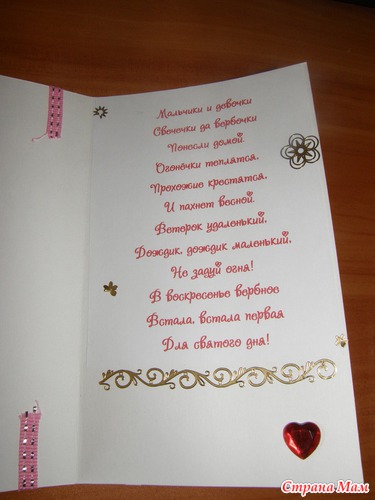 Мальчики и девочки
Свечечки да вербочки
Понесли домой.
Огонёчки теплятся,
Прохожие крестятся,
И пахнет весной.
Ветерок удаленький,
Дождик, дождик маленький,
Не задуй огня!
В воскресенье вербное
Встала, встала первая
Для святого дня!
Страна Мам